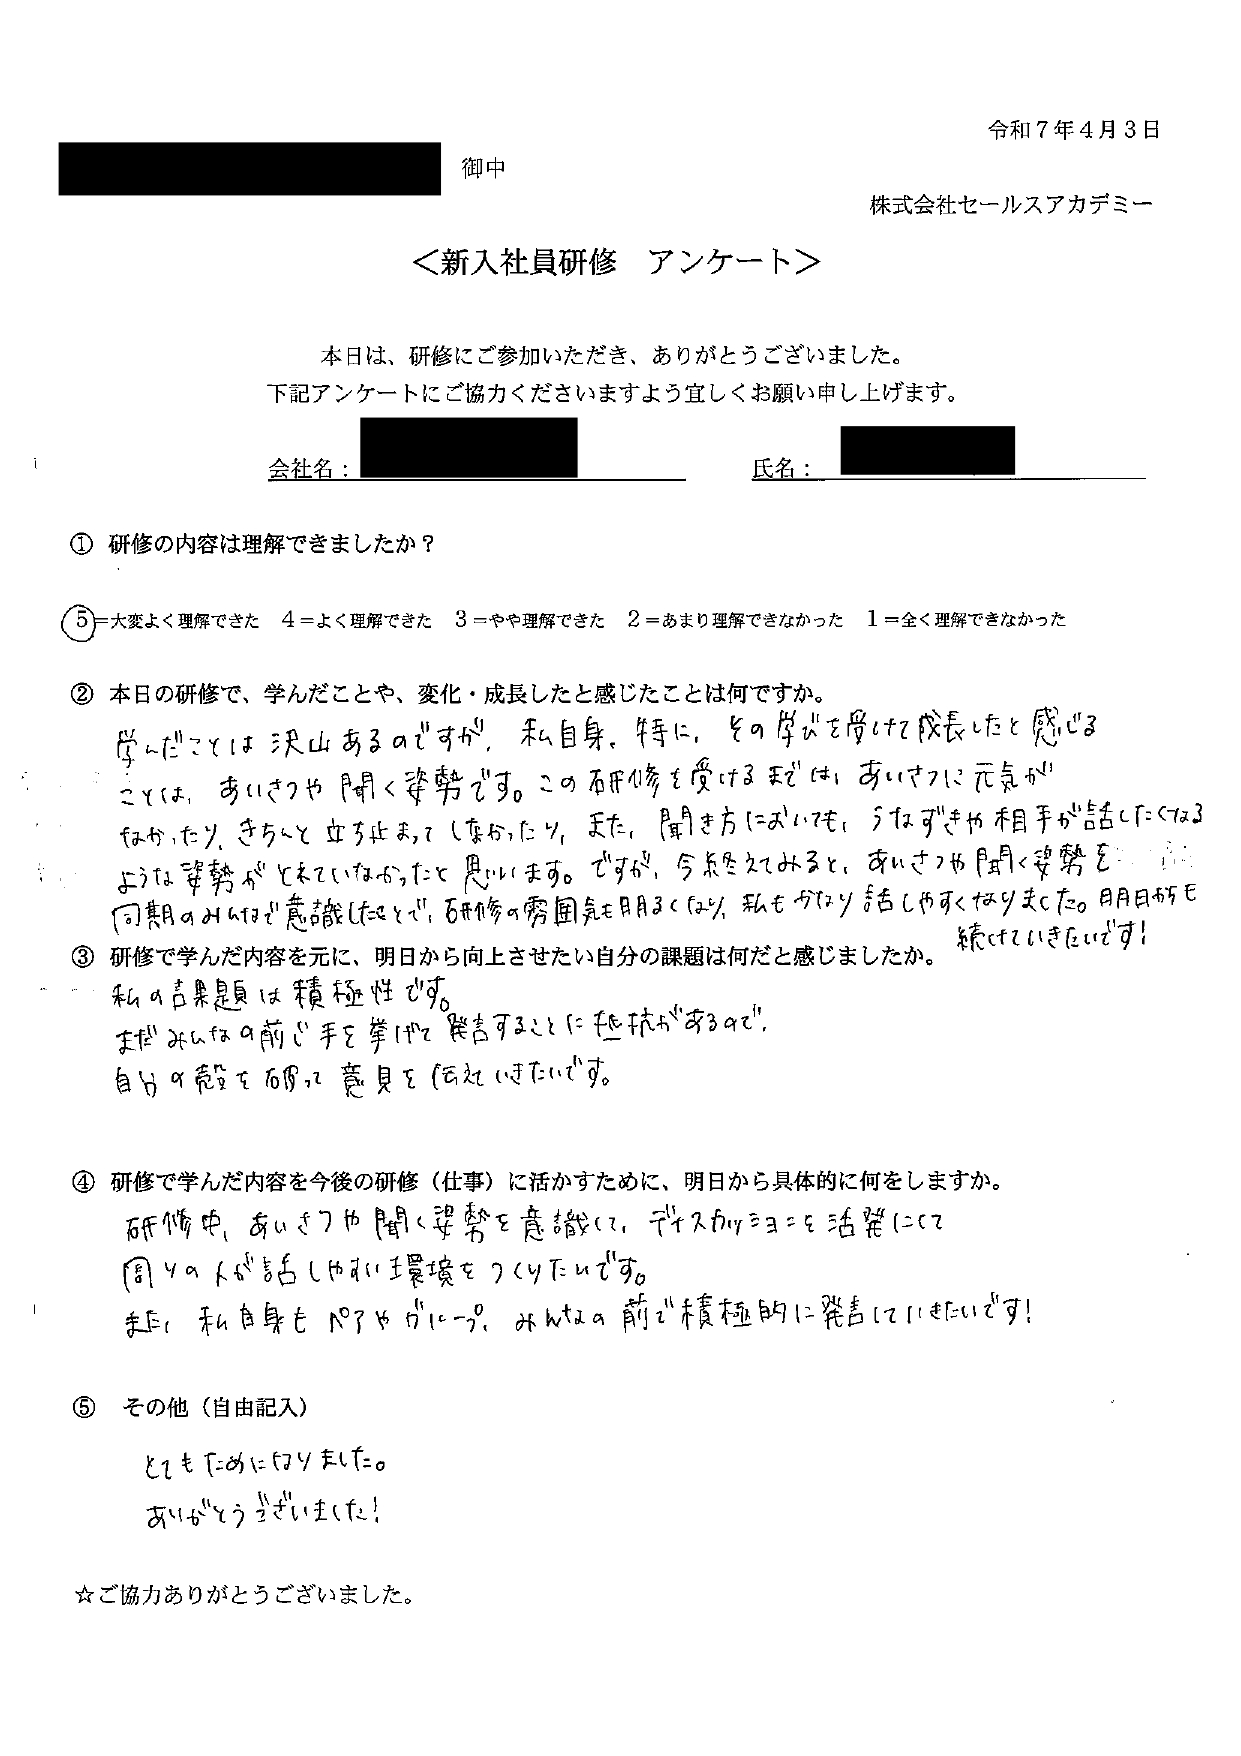 令和７年４月３日
御中
株式会社セールスアカデミー
＜新入社員研修　アンケート＞
本日は、研修にご参加いただき、ありがとうございました。
下記アンケートにご協力くださいますよう宜しくお願い申し上げます。
会社名：　氏名：
① 研修の内容は理解できましたか？
５＝大変よく理解できた　４＝よく理解できた　３＝やや理解できた　２＝あまり理解できなかった　１＝全く理解できなかった
② 本日の研修で、学んだことや、変化・成長したと感じたことは何ですか。
学んだことは沢山あるのですが、私自身、特に、その学びを受けて成長したと感じる
ことは、あいさつや聞く姿勢です。この研修を受けるまでは、あいさつに元気が
なかったり、きちんと立ち止まってしなかったり、また、聞き方においても、うなずきや相手が話したくなる
ような姿勢がとれていなかったと思います。ですが、今終えてみると、あいさつや聞く姿勢を
同期のみんなで意識したことで、研修の雰囲気も明るくなり、私もかなり話しやすくなりました。明日からも
続けていきたいです！
③ 研修で学んだ内容を元に、明日から向上させたい自分の課題は何だと感じましたか。
私の課題は積極性です。
まだみんなの前で手を挙げて発言することに抵抗があるので、
自分の殻を破って意見を伝えていきたいです。
④ 研修で学んだ内容を今後の研修（仕事）に活かすために、明日から具体的に何をしますか。
研修中、あいさつや聞く姿勢を意識して、ディスカッションを活発にして
周りの人が話しやすい環境をつくりたいです。
また、私自身もペアやグループ、みんなの前で積極的に発言していきたいです！
⑤　その他（自由記入）
とてもためになりました。
ありがとうございました！
☆ご協力ありがとうございました。